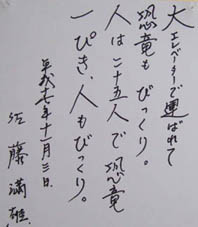 大エレベーターで運ばれて
恐竜もびっくり。
人は二十五人で恐竜
一ぴき、人もびっくり。
平成十七年十一月三日
佐藤満雄